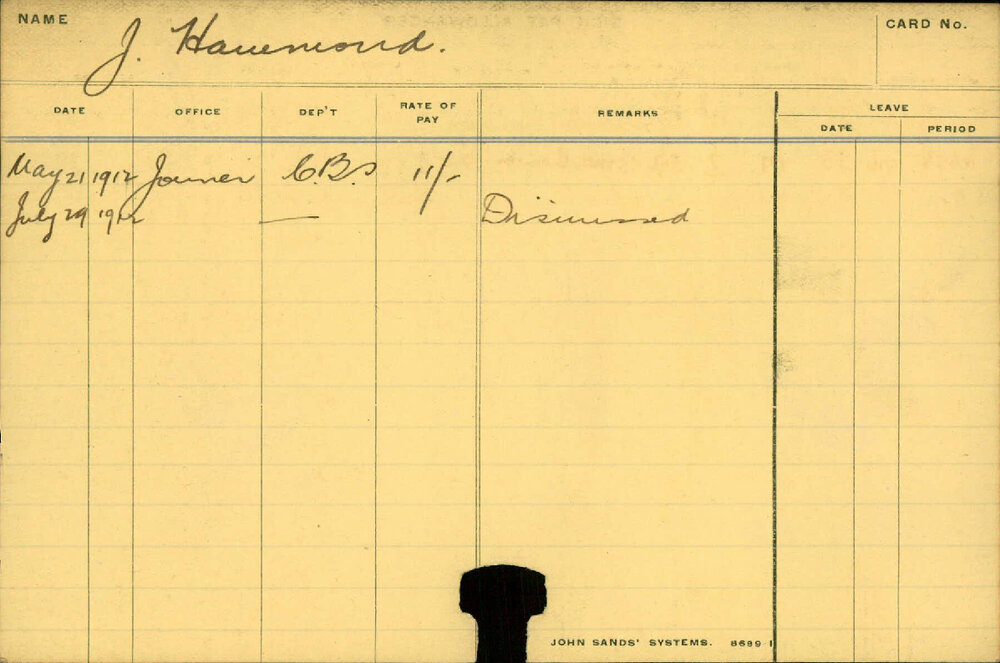 NAME J. Hammond. CARD No.
DATE OFFICE DEP'T RATE OF PAY REMARKS LEAVE
DATE PERIOD
May 21 1912 Joiner C.B.S 11/-
July 29 1912 — Dismissed
JOHN SANDS' SYSTEMS. 8689 1